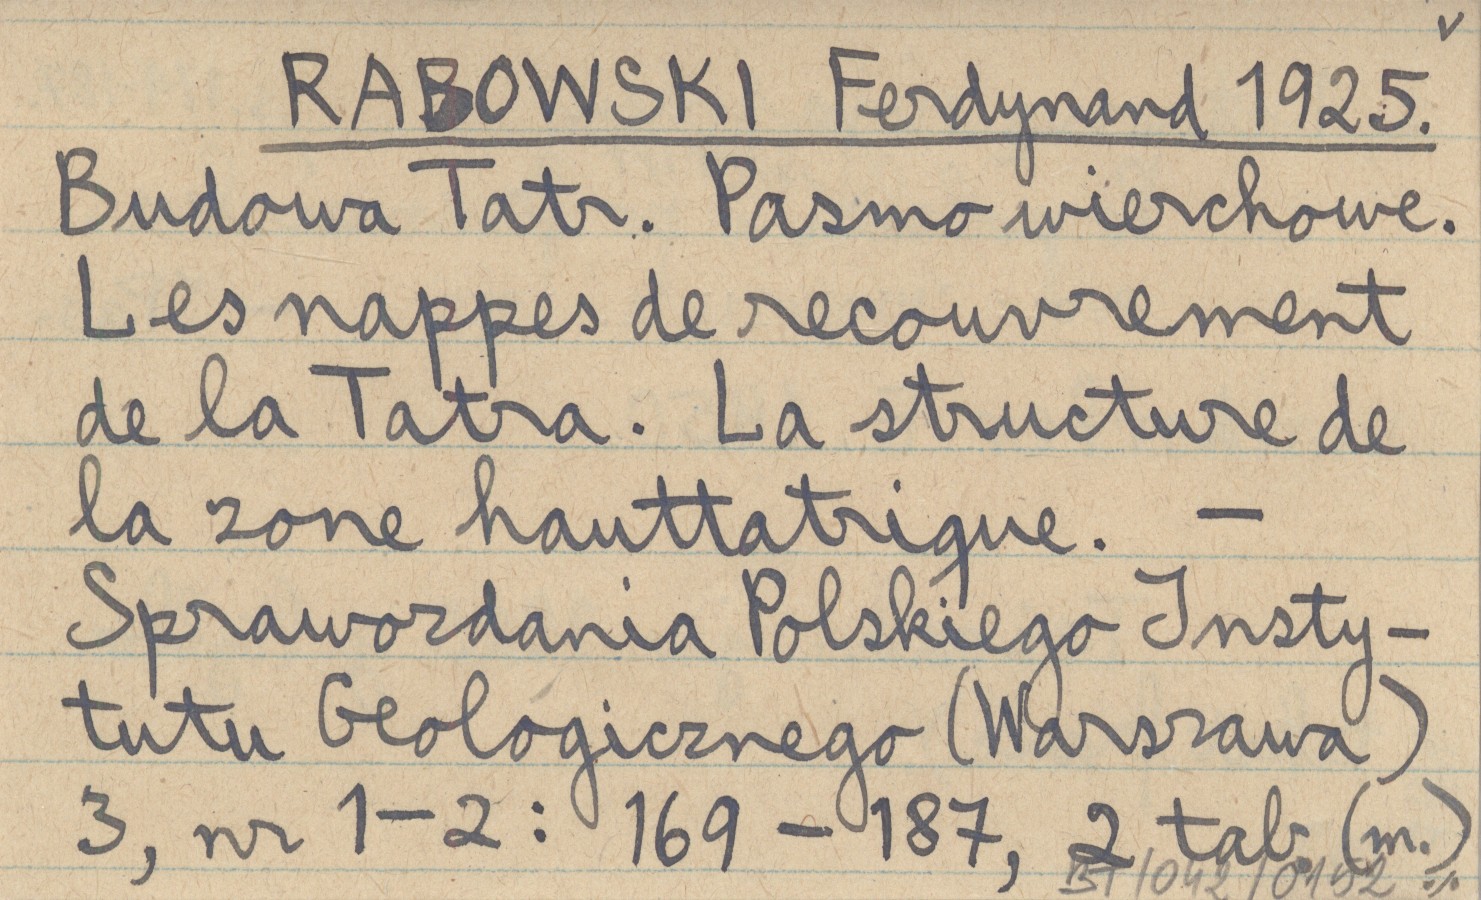 v
RABOWSKI Ferdynand 1925.
Budowa Tatr. Pasmo wierchowe.
Les nappes de recouvrement
de la Tatra. La structure de
la zone hauttatrique. –
Sprawozdania Polskiego Insty-
tutu Geologicznego (Warszawa)
3, nr 1–2: 169–187, 2 tab. (m.)
BT/042/0152 ./.